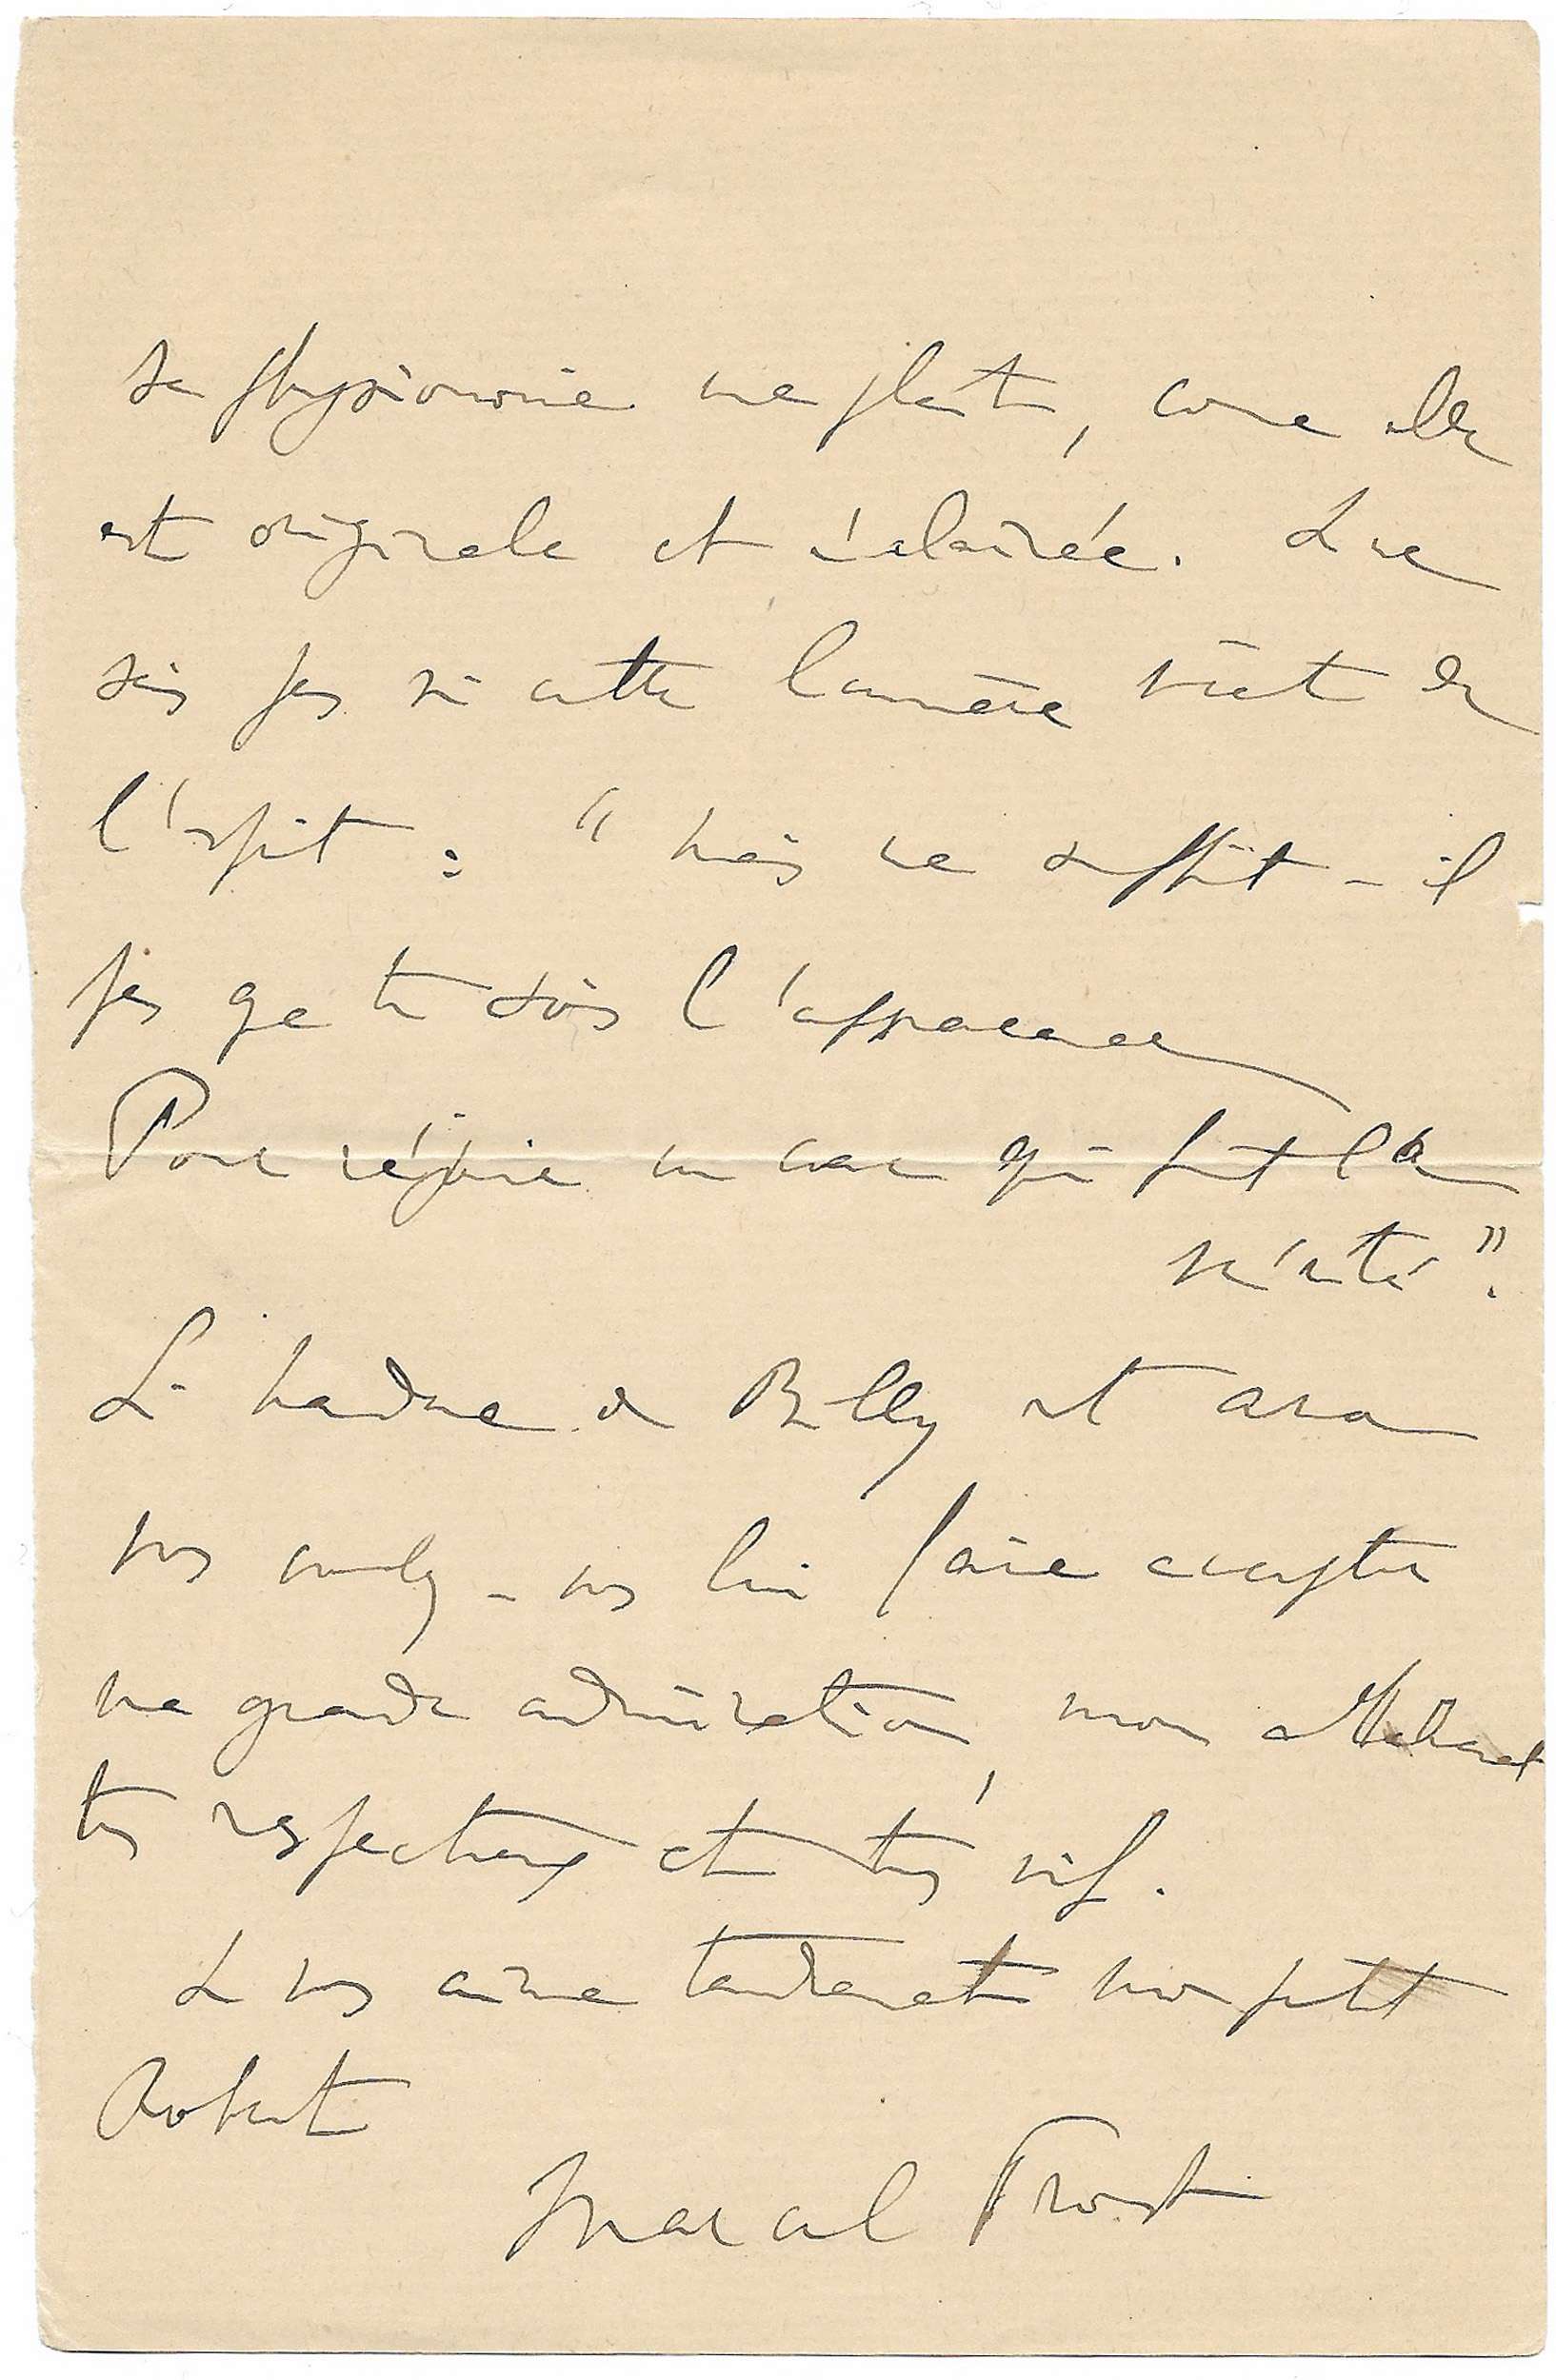 sa physionomie me plait, comme elle
est originale et éclairée. Je ne
sais pas si cette lumière vient de
l'esprit : "Mais ne suffit-il
pas que tu sois l'apparence
Pour réjouir un cœur qui fuit la
vérité".
Si Madame de Billy est avec
vous voulez-vous lui faire accepter
ma grande admiration, mon
très respectueux et très vif.
Je vous aime tendrement mon petit
Robert
Marcel Proust